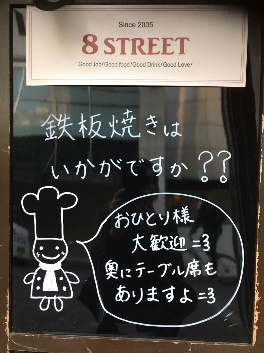 Since 2005
8 STREET
Good Job/Good food/Good Drink/Good Love/
鉄板焼きは
いかがですか??
おひとり様
大歓迎=3
奥にテーブル席も
ありますよ=3